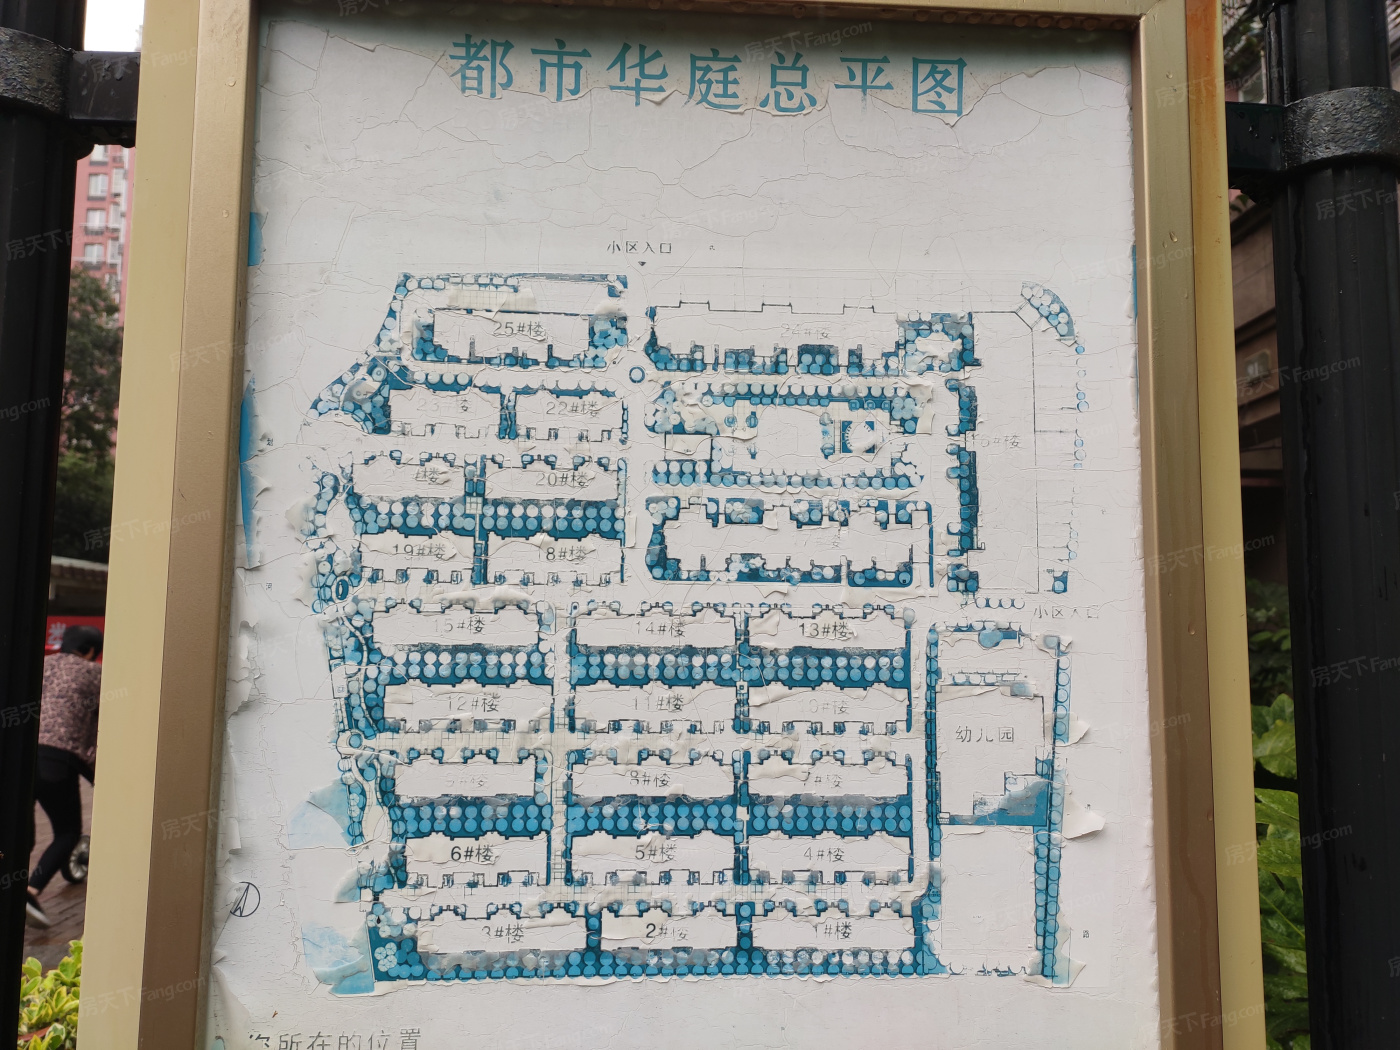 都市华庭总平图
小区入口
25#楼
24#楼
23#楼
22#楼
20#楼
19#楼
8#楼
小区入口
15#楼
14#楼
13#楼
12#楼
11#楼
幼儿园
8#楼
7#楼
6#楼
5#楼
4#楼
3#楼
2#楼
1#楼
你所在的位置
房天下Fang.com